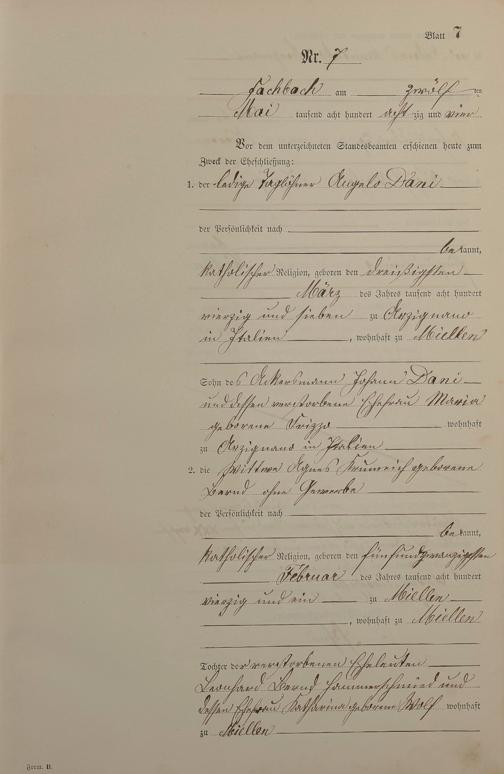 Blatt 7
Nr. 7
Fachbach am zwölf ten
Mai tausend acht hundert acht zig und vier
Vor dem unterzeichneten Standesbeamten erschienen heute zum
Zweck der Eheschließung:
1. der ledige Taglöhner Angelo Dani
der Persönlichkeit nach
bekannt,
katholischer Religion, geboren den dreißigsten
März des Jahres tausend acht hundert
vierzig und sieben zu Arzignano
in Italien, wohnhaft zu Miellen
Sohn des Ackersmann Johann Dani
und dessen verstorbene Ehefrau Maria
geborene Frizzo wohnhaft
zu Arzignano in Italien
2. die Wittwe Agnes Krumeich geborene
Bernd ohne Gewerbe
der Persönlichkeit nach
bekannt,
katholischer Religion, geboren den fünfundzwanzigsten
Februar des Jahres tausend acht hundert
vierzig und ein zu Miellen
, wohnhaft zu Miellen
Tochter der verstorbenen Eheleuten
Leonhard Bernd Hammerschmied und
dessen Ehefrau Katharina geborene Wolf wohnhaft
zu Miellen
Form. B.